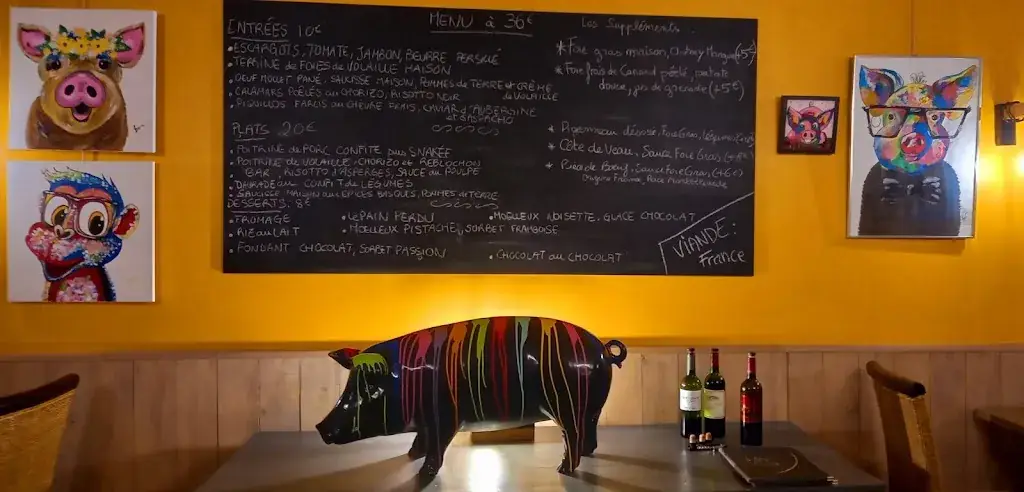 ENTRÉES 10€
• ESCARGOTS, TOMATE, JAMBON, BEURRE PERSILLÉ
• TERRINE de FOIES de VOLAILLE MAISON
• OEUF MOLLET PANÉ, SAUCISSE MAISON, POMMES de TERRE et CRÈME de VOLAILLE
• CALAMARS POÊLÉS au CHORIZO, RISOTTO NOIR
• PIQUILLOS FARCIS au CHÈVRE FRAIS, CAVIAR d'AUBERGINE et GASPACHO
PLATS 20€
• POITRINE de PORC CONFITE puis SNAKÉE
• POITRINE de VOLAILLE, CHORIZO et REBLOCHON
BAR, RISOTTO d'ASPERGES, SAUCE au POULPE
• DAURADE au CONFIT de LÉGUMES
• SAUCISSE MAISON aux EPICES BASQUES, POMMES de TERRE
DESSERTS: 8€
• FROMAGE
• LE PAIN PERDU
• MOELLEUX NOISETTE, GLACE CHOCOLAT
• RIZ au LAIT
• MOELLEUX PISTACHE, SORBET FRAMBOISE
• FONDANT CHOCOLAT, SORBET PASSION
• CHOCOLAT au CHOCOLAT
MENU à 36€
Les Suppléments
* Foie gras maison, Chutney (+5€)
* Foie frais de Canard poêlé, patate
douce, jus de grenade (+5€)
* Pigeonneau désossé, Foie Gras, légumes
* Côte de Veau, Sauce Foie Gras
* Pièce de Boeuf, Sauce Foie Gras
Origine France, Race
VIANDE:
France